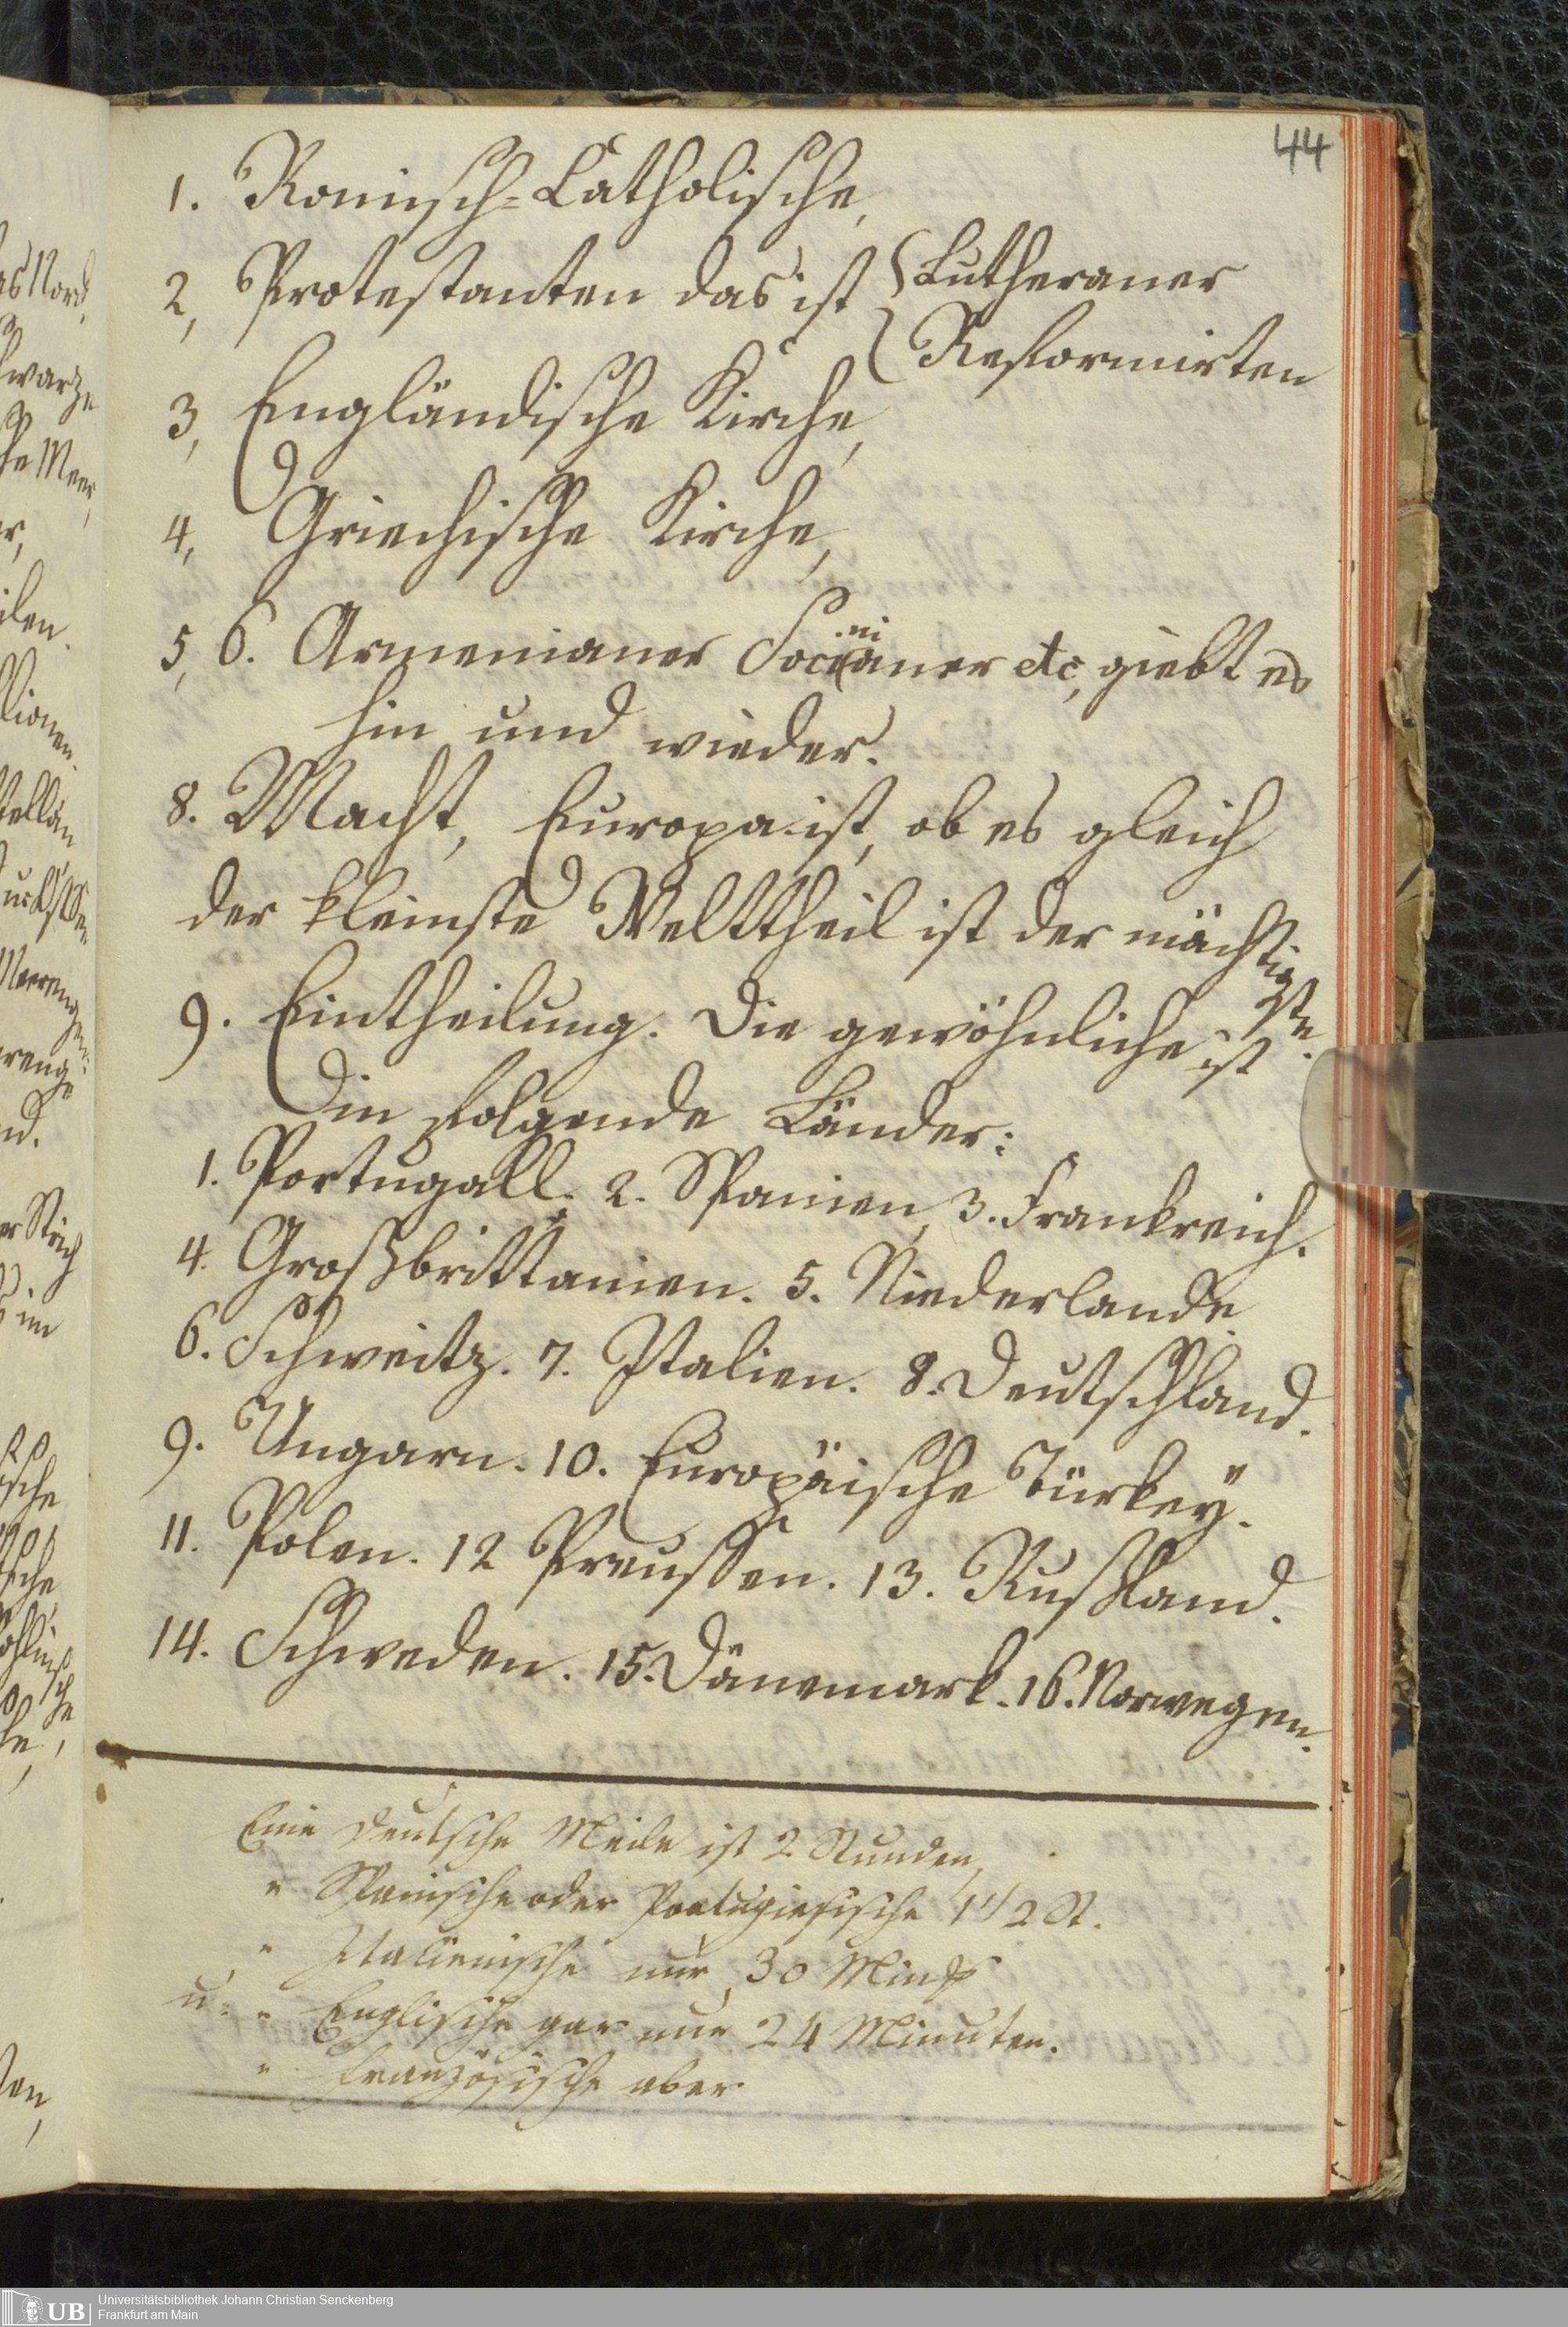 44
1. Romisch-Catholische,
2, Protestanten das ist { Lutheraner
{ Reformirten
3, Engländische Kirche,
4, Griechische Kirche,
5, 6. Armenianer Socinianer etc, giebt es
hin und wieder.
8. Macht, Europa ist, ob es gleich
der kleinste Welttheil ist der mächtigste.
9. Eintheilung. Die gewöhnliche ist
in folgende Länder:
1. Portugall. 2. Spanien, 3. Frankreich.
4. Großbrittanien. 5. Niederlande.
6. Schweitz. 7. Italien. 8. Deutschland.
9. Ungarn. 10. Europäische Türkeÿ.
11. Polen. 12 Preussen. 13. Rußland.
14. Schweden. 15. Dänemark. 16. Norwegen.
Eine Deutsche Meile ist 2 Stunden,
" Spanische oder Portugiesische 1 1/2 St.
" Italienische nur 30 Min
u: " Englische gar nur 24 Minuten.
" Französische aber
UB Universitätsbibliothek Johann Christian Senckenberg
Frankfurt am Main